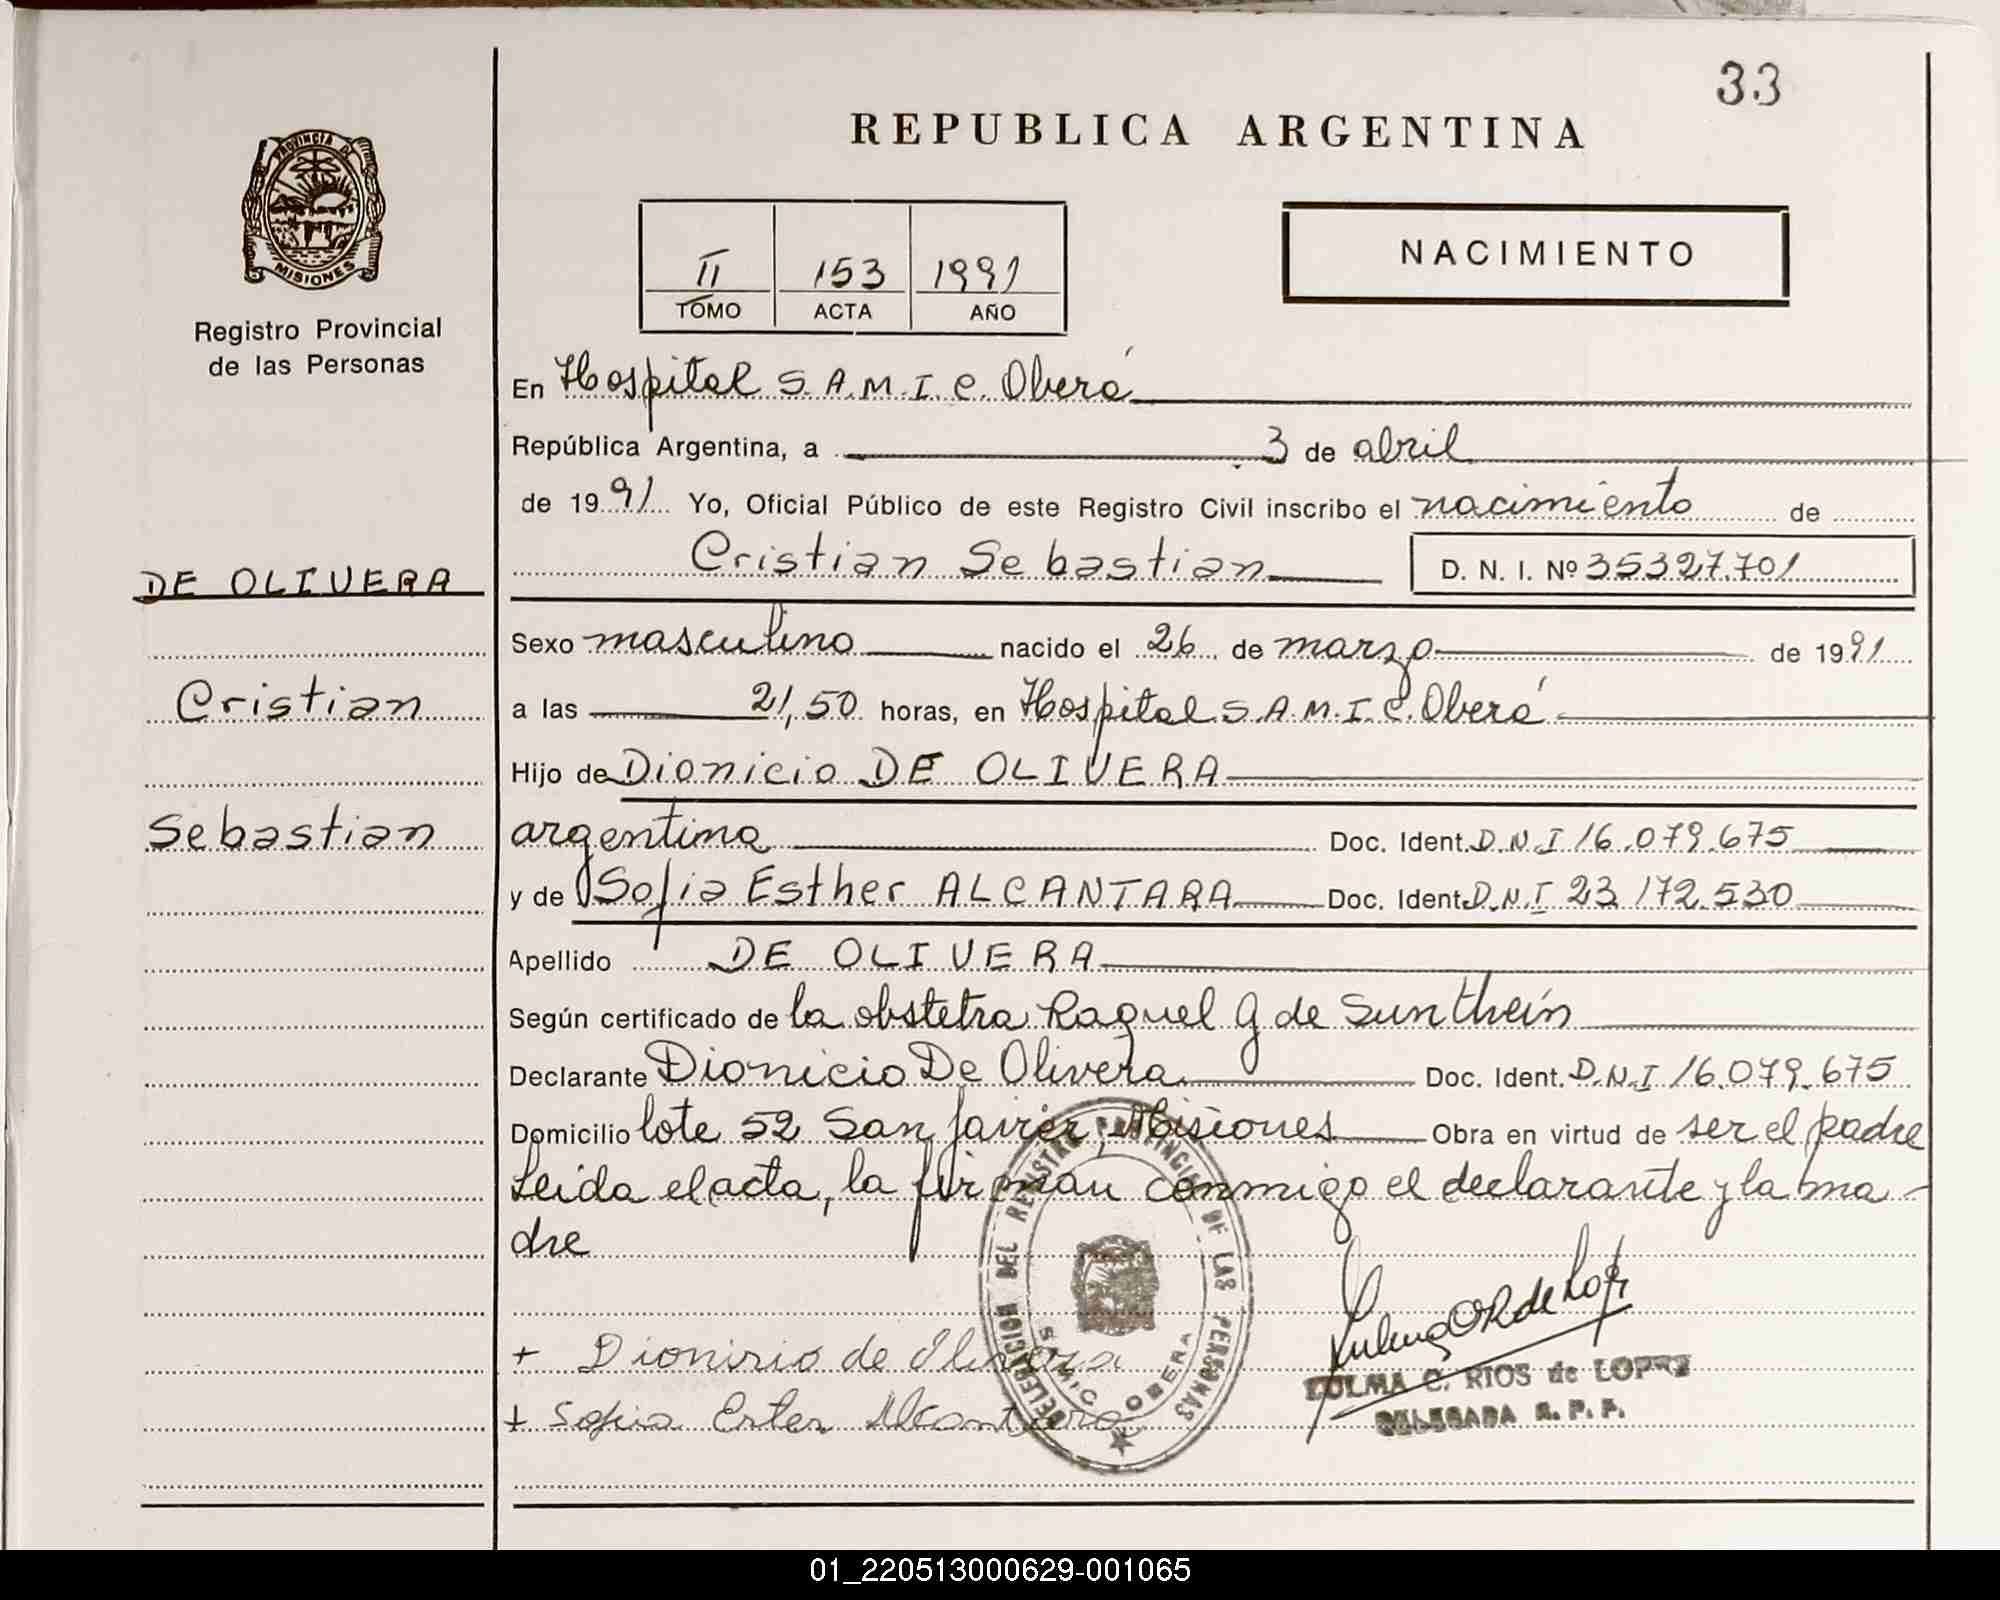 33
REPUBLICA ARGENTINA
PROVINCIA DE
MISIONES
Registro Provincial
de las Personas
NACIMIENTO
II 153 1991
TOMO ACTA AÑO
En Hospital S.A.M.I.C. Oberá
República Argentina, a 3 de abril
de 1991 Yo, Oficial Público de este Registro Civil inscribo el nacimiento de
Cristian Sebastian D. N. I. Nº 35327.701
DE OLIVERA
Cristian
Sebastian
Sexo masculino nacido el 26 de marzo de 1991
a las 21,50 horas, en Hospital S.A.M.I.C. Oberá
Hijo de Dionicio DE OLIVERA
argentina Doc. Ident. D.N.I 16.079.675
y de Sofia Esther ALCANTARA Doc. Ident. D.N.I 23.172.530
Apellido DE OLIVERA
Según certificado de la obstetra Raquel G de Sunthein
Declarante Dionicio De Olivera Doc. Ident. D.N.I 16.079.675
Domicilio lote 52 San Javier, Misiones Obra en virtud de ser el padre
Leida el acta, la firman conmigo el declarante y la ma-
dre
+ Dionisio de Olivera
+ Sofia Ester Alcantara
DELEGACION DEL REGISTRO PROVINCIAL DE LAS PERSONAS
SAMIC OBERA
ZULMA C. RIOS de LOPEZ
DELEGADA R. P. P.
01_220513000629-001065